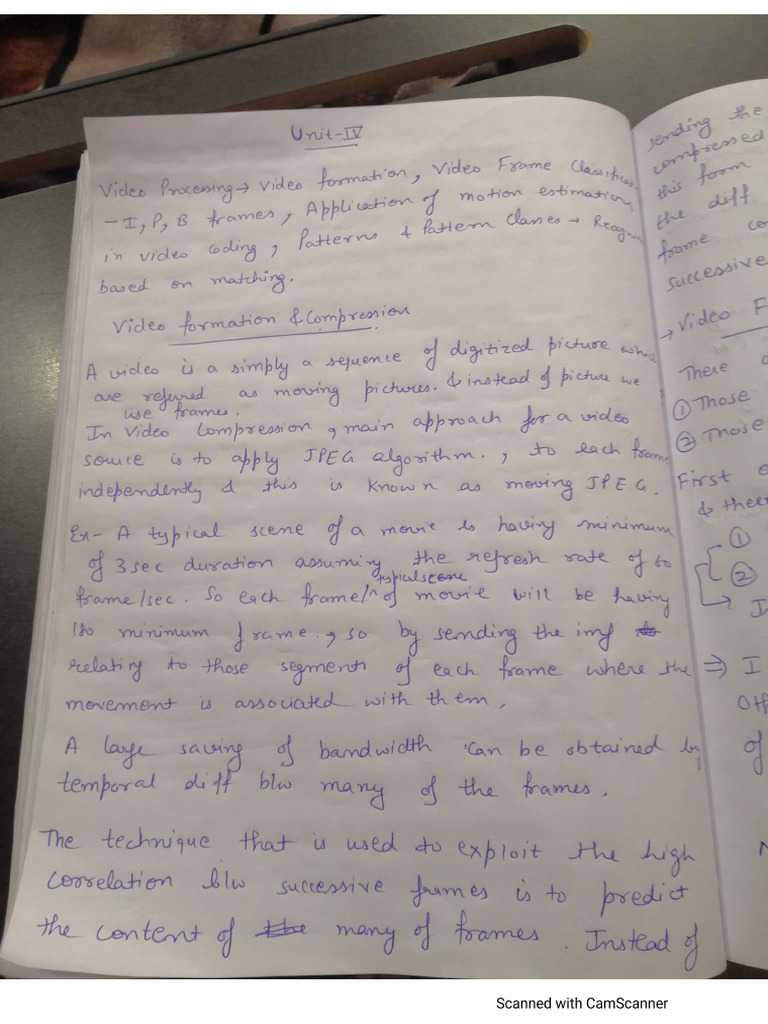 Unit-IV
Video Processing → Video formation, Video Frame Classification
- I, P, B frames, Application of motion estimation
in video coding, Patterns & Pattern Classes →
based on matching.
Video formation & Compression
A video is a simply a sequence of digitized picture which
are refered as moving pictures. & instead of picture we
use frames.
In Video Compression, main approach for a video
source is to apply JPEG algorithm., to each frame
independently & this is known as moving JPEG.
Ex- A typical scene of a movie is having minimum
of 3 sec duration assuming the refresh rate of 60
frame/sec. So each frame/typical scene of movie will be having
180 minimum frame., so by sending the inf
relating to those segments of each frame where the
movement is associated with them.
A large saving of bandwidth can be obtained by
temporal diff b/w many of the frames.
The technique that is used to exploit the high
correlation b/w successive frames is to predict
the content of many of frames. Instead of
sending the
compressed
this form
the diff
frame
successive
→ Video F
There
① Those
② Those
First
&
①
②
→ I
⇒ I
of
Scanned with CamScanner